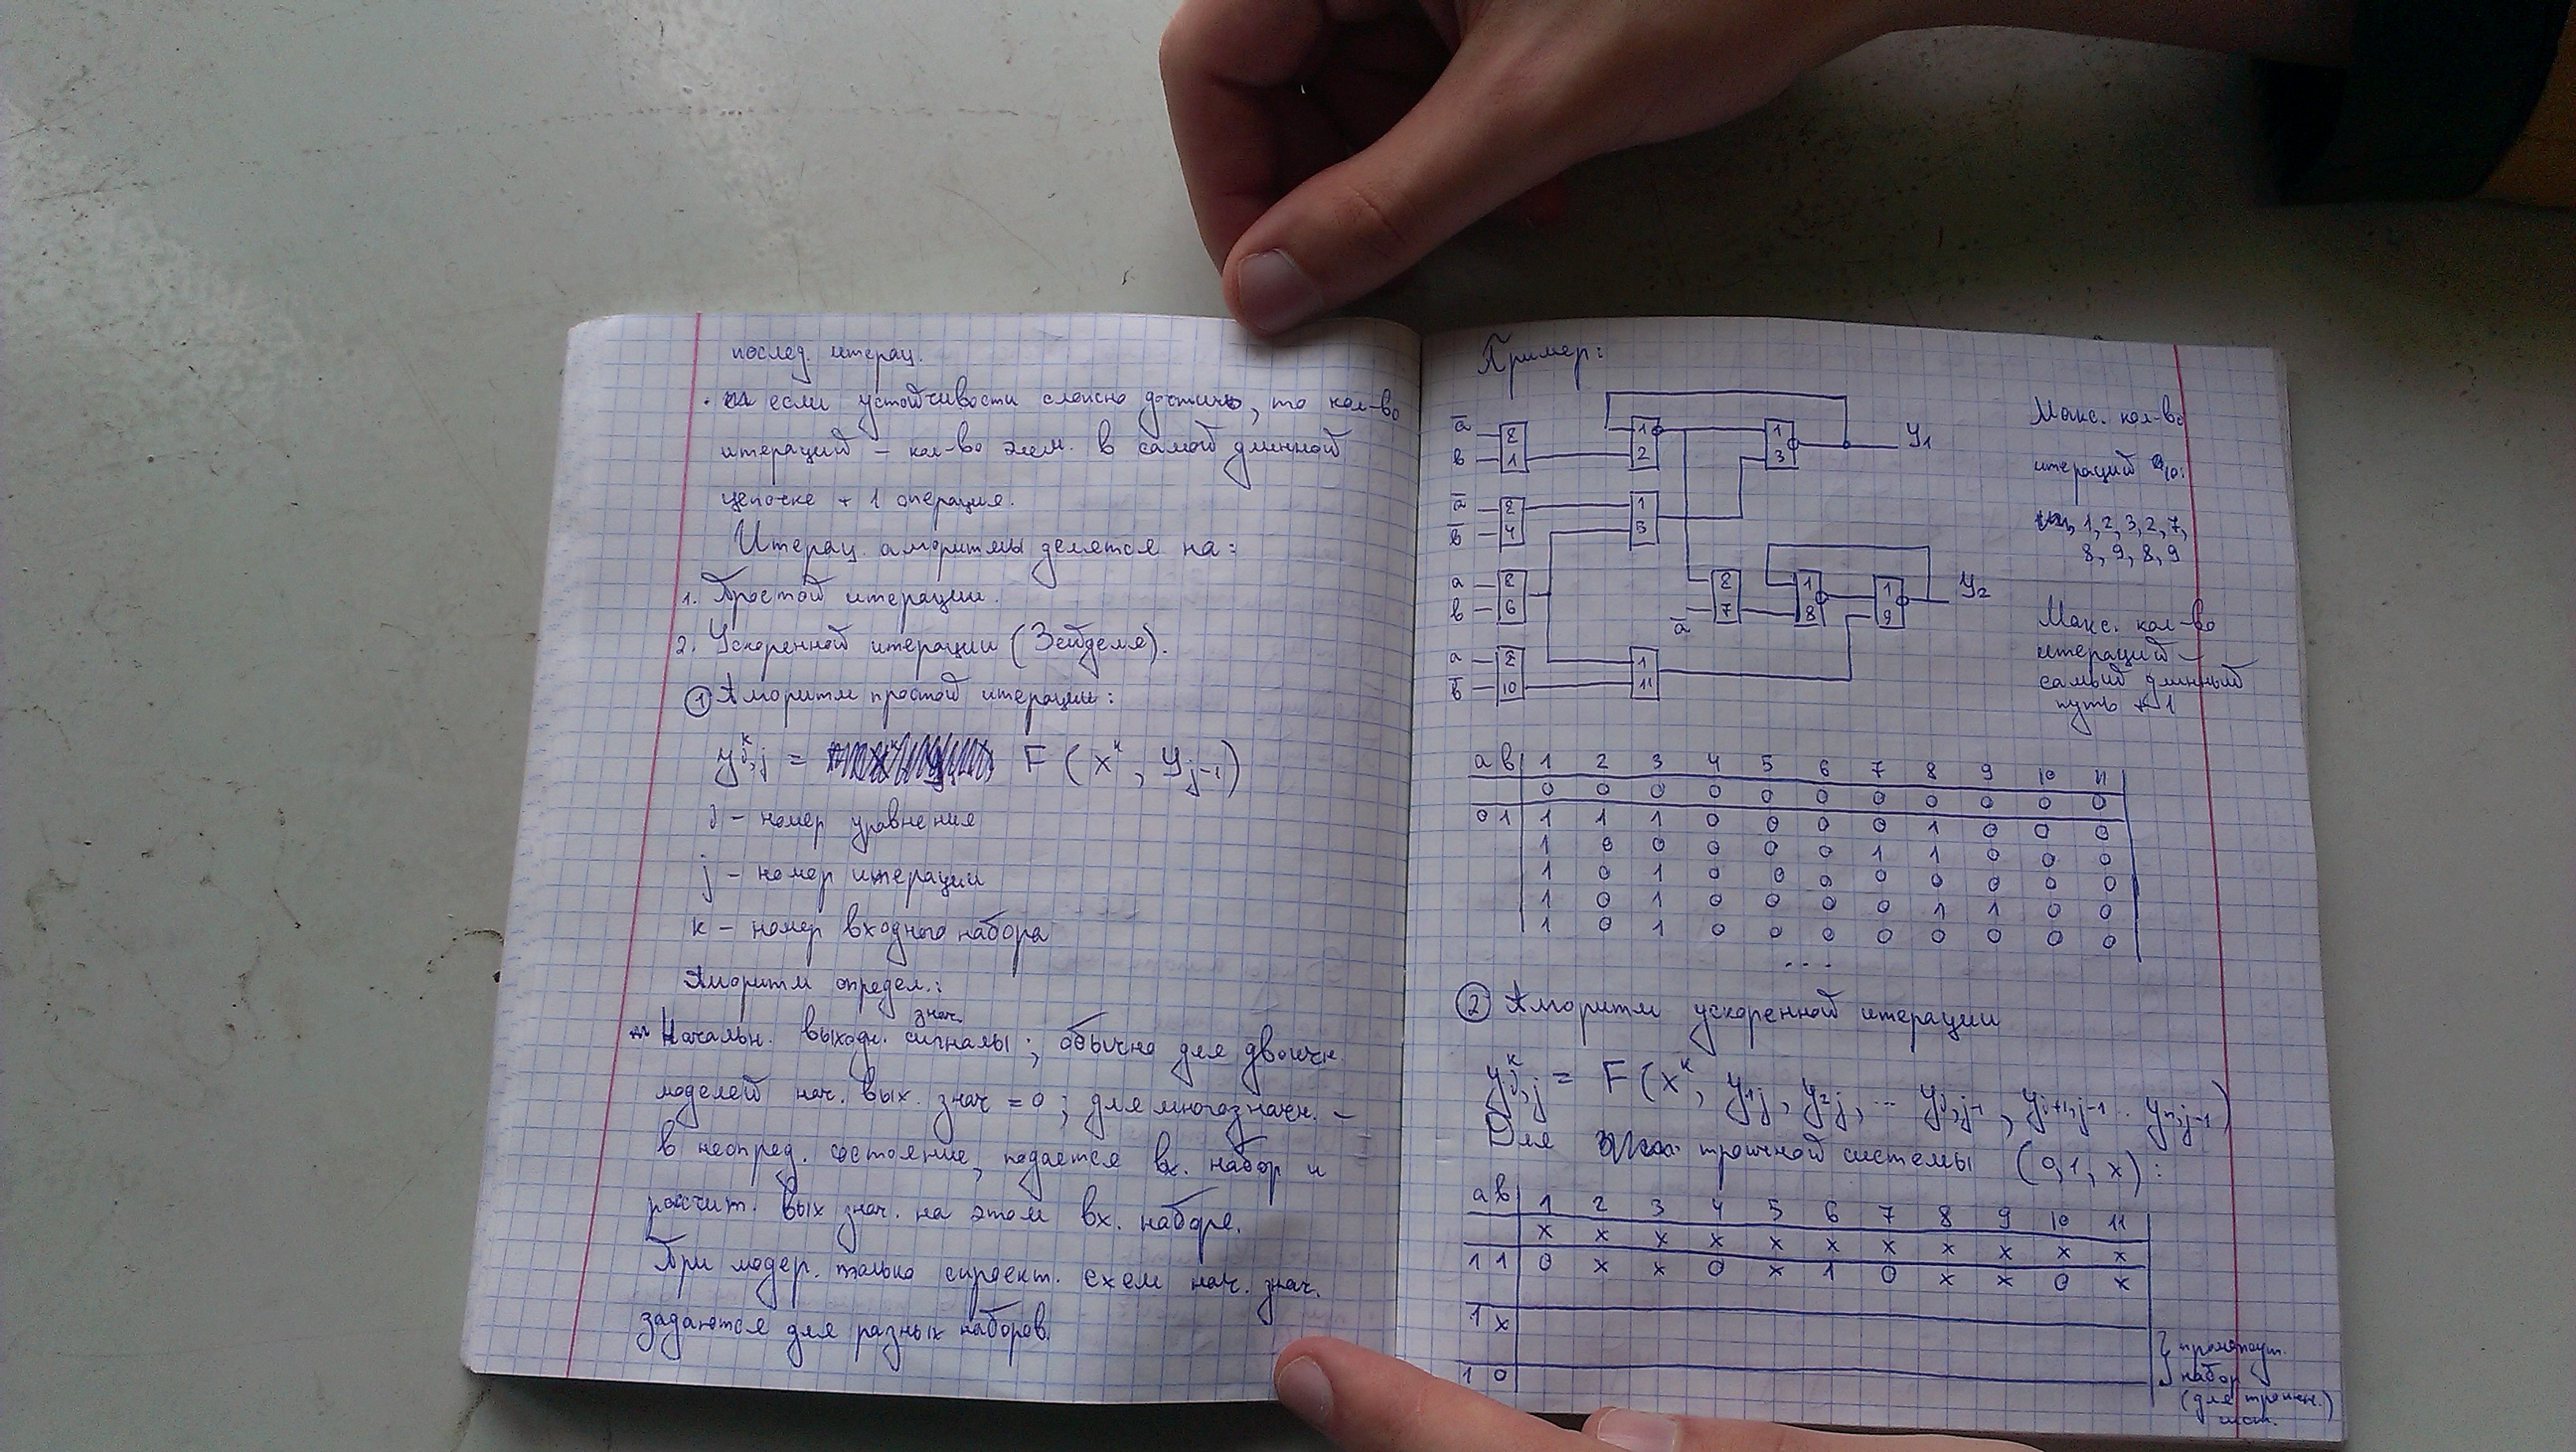 послед. итерац.
· если устойчивости сложно достичь, то кол-во
итераций – кол-во элем. в самой длинной
цепочке + 1 операция.
Итерац. алгоритмы делятся на:
1. Простой итерации.
2. Ускоренной итерации (Зейделя).
① Алгоритм простой итерации:
y^k i,j = F (x^k, y j-1)
i – номер уравнения
j – номер итерации
к – номер входного набора
Алгоритм определ.:
знач.
Начальн. выходн. сигналы; обычно для двоичн.
моделей нач. вых. знач = 0; для многозначн. –
в неопред. состояние, подается вх. набор и
рассчит. вых знач. на этом вх. наборе.
При модер. только спроект. схем нач. знач.
задаются для разных наборов.
Пример:
a̅ в & 1
1 2
1 3
y1
a̅ в̅ & 4
1 5
a в & 6
a̅ & 7
1 8
1 9
y2
a в̅ & 10
1 11
Макс. кол-во
итераций
1, 2, 3, 2, 7,
8, 9, 8, 9
Макс. кол-во
итераций –
самый длинный
путь + 1
a в 1 2 3 4 5 6 7 8 9 10 11
0 0 0 0 0 0 0 0 0 0 0
0 1 1 1 1 0 0 0 0 1 0 0 0
1 0 0 0 0 0 1 1 0 0 0
1 0 1 0 0 0 0 0 0 0 0
1 0 1 0 0 0 0 1 1 0 0
1 0 1 0 0 0 0 0 0 0 0
...
② Алгоритм ускоренной итерации
y^k i,j = F (x^k, y1j, y2j, ... yi,j-1, yi+1,j-1 .. yn,j-1)
Для троичной системы (0, 1, x):
a в 1 2 3 4 5 6 7 8 9 10 11
x x x x x x x x x x x
1 1 0 x x 0 x 1 0 x x 0 x
1 x
1 0
} промежут.
набор
(для троичн.)
сист.